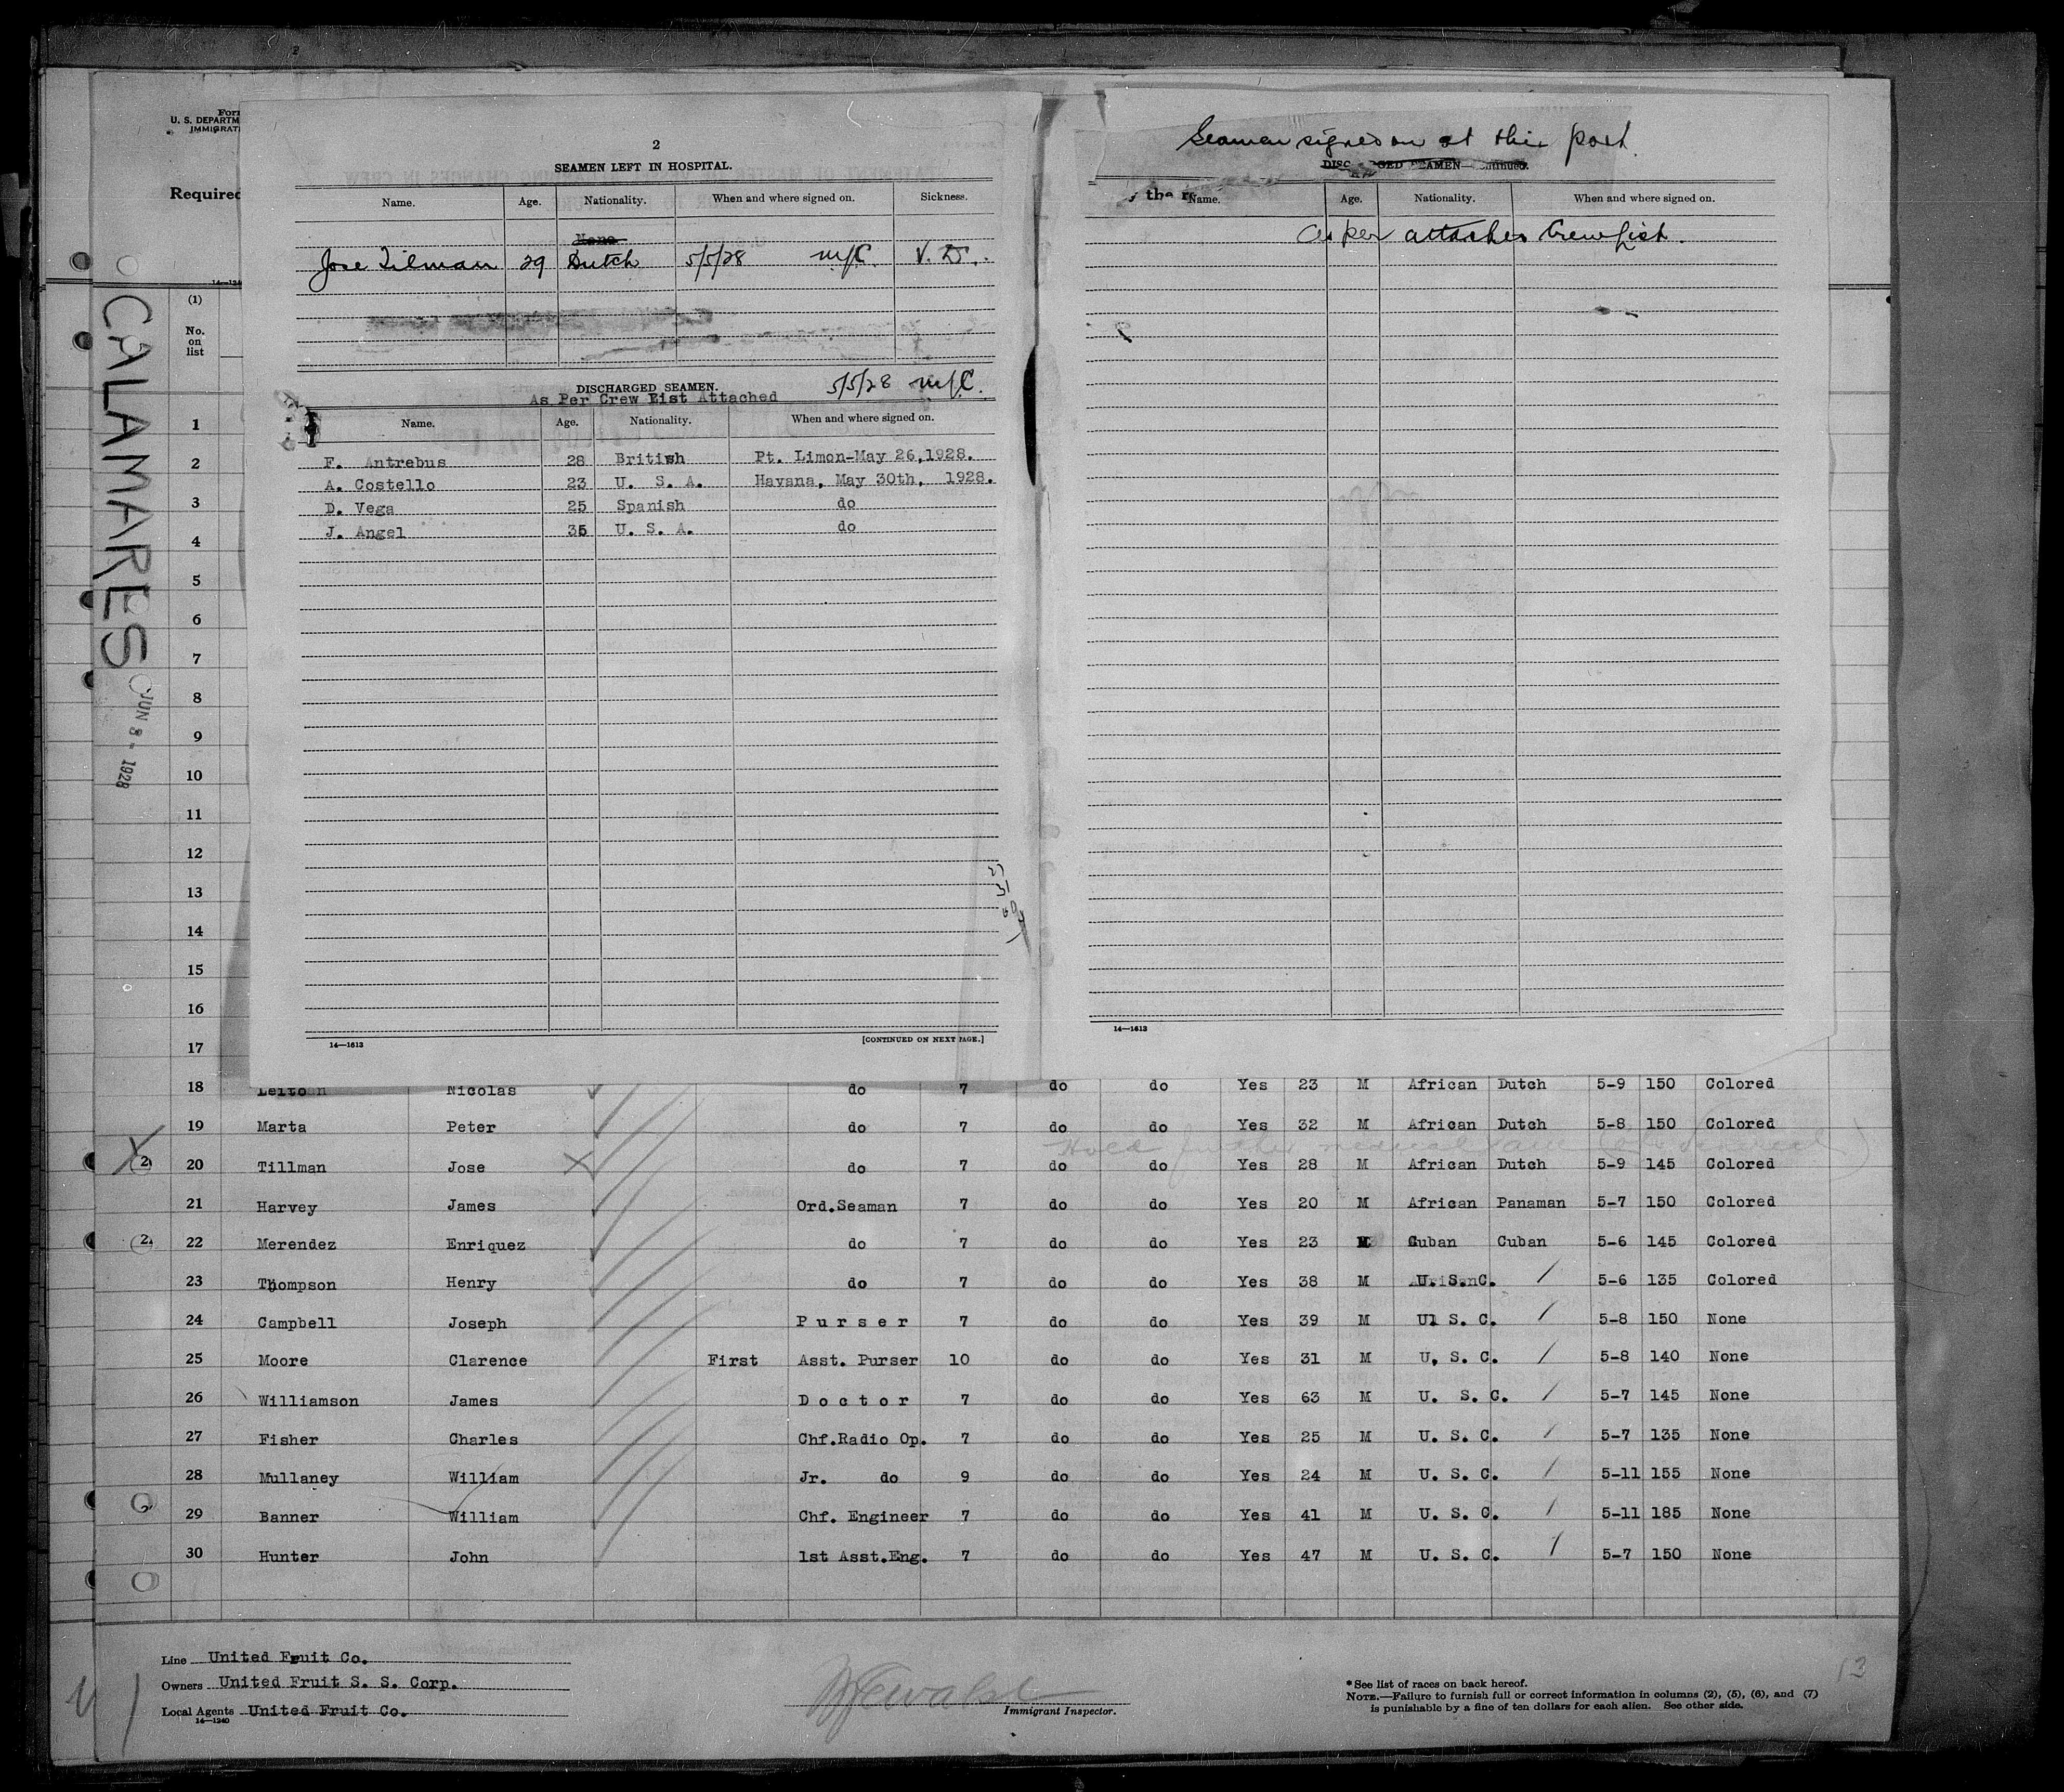 Form
U. S. DEPARTM
IMMIGRATI
Required
CALAMARES
JUN 8 - 1928
2
SEAMEN LEFT IN HOSPITAL.
Name. Age. Nationality. When and where signed on. Sickness.
Jose Tilman 29 Dutch 5/5/28 N.Y.C. V. D.
DISCHARGED SEAMEN. 5/5/28 N.Y.C.
As Per Crew List Attached
Name. Age. Nationality. When and where signed on.
F. Antrebus 28 British Pt. Limon-May 26,1928.
A. Costello 23 U. S. A. Havana, May 30th, 1928.
D. Vega 25 Spanish do
J. Angel 35 U. S. A. do
14—1613 [CONTINUED ON NEXT PAGE.]
Seamen signed on at this port
DISCHARGED SEAMEN—Continued.
, the r
Name. Age. Nationality. When and where signed on.
As per attached Crew list.
14—1613
(1)
No.
on
list
1
2
3
4
5
6
7
8
9
10
11
12
13
14
15
16
17
18 Leitoan Nicolas do 7 do do Yes 23 M African Dutch 5-9 150 Colored
19 Marta Peter do 7 do do Yes 32 M African Dutch 5-8 150 Colored
2 20 Tillman Jose do 7 do do Yes 28 M African Dutch 5-9 145 Colored
21 Harvey James Ord.Seaman 7 do do Yes 20 M African Panaman 5-7 150 Colored
2 22 Merendez Enriquez do 7 do do Yes 23 M Cuban Cuban 5-6 145 Colored
23 Thompson Henry do 7 do do Yes 38 M U. S. C. 5-6 135 Colored
24 Campbell Joseph Purser 7 do do Yes 39 M U. S. C. 5-8 150 None
25 Moore Clarence First Asst. Purser 10 do do Yes 31 M U. S. C. 5-8 140 None
26 Williamson James Doctor 7 do do Yes 63 M U. S. C. 5-7 145 None
27 Fisher Charles Chf.Radio Op. 7 do do Yes 25 M U. S. C. 5-7 135 None
28 Mullaney William Jr. do 9 do do Yes 24 M U. S. C. 5-11 155 None
2 29 Banner William Chf. Engineer 7 do do Yes 41 M U. S. C. 5-11 185 None
30 Hunter John 1st Asst.Eng. 7 do do Yes 47 M U. S. C. 5-7 150 None
Line United Fruit Co.
Owners United Fruit S. S. Corp.
Local Agents United Fruit Co.
14—1240
Immigrant Inspector.
*See list of races on back hereof.
NOTE.—Failure to furnish full or correct information in columns (2), (5), (6), and (7)
is punishable by a fine of ten dollars for each alien. See other side.
13